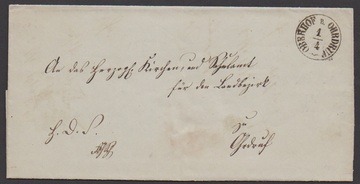 OBERHOF n. OHRDRUF
1/4
An das Herzogl. Kirchen- und Schulamt
für den Landbezirk
H. D. S.
zu
Ohrdruf